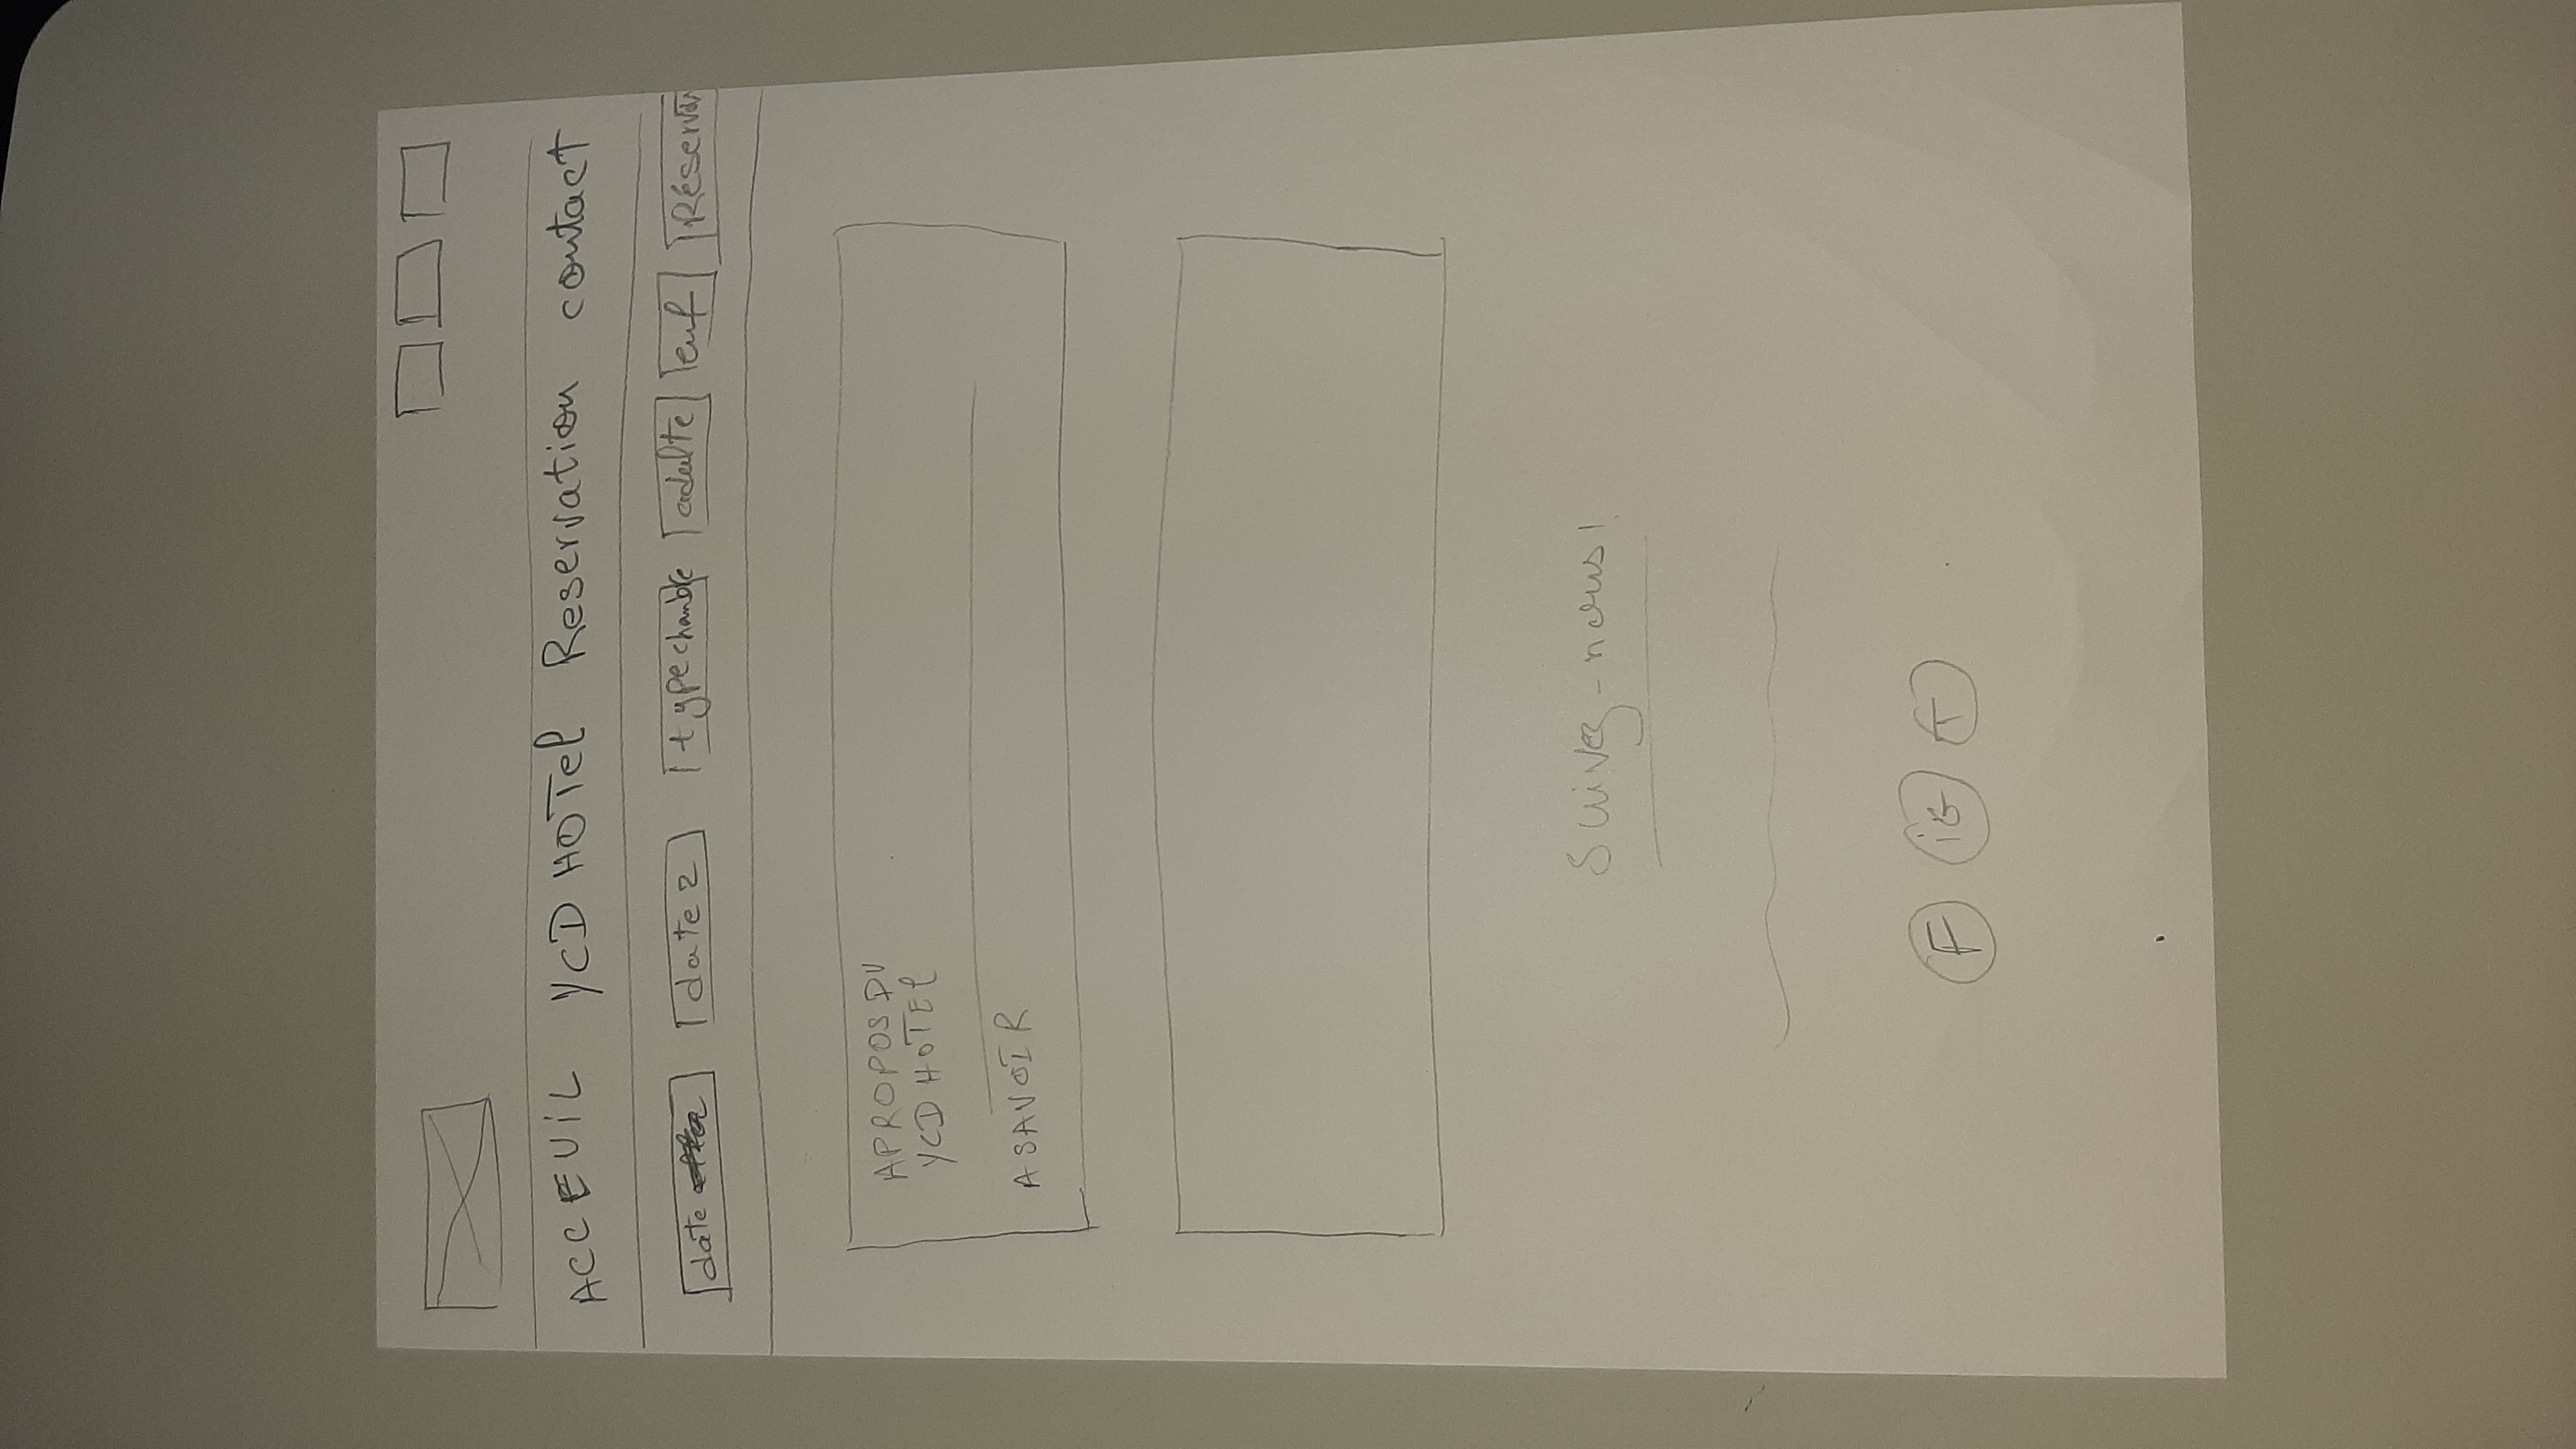 ACCEUIL YCD HOTEL Reservation contact
date date 2 type chambre adulte enf Réserver
APROPOS DU
YCD HOTEL
A SAVOIR
Suivez-nous!
F IG T